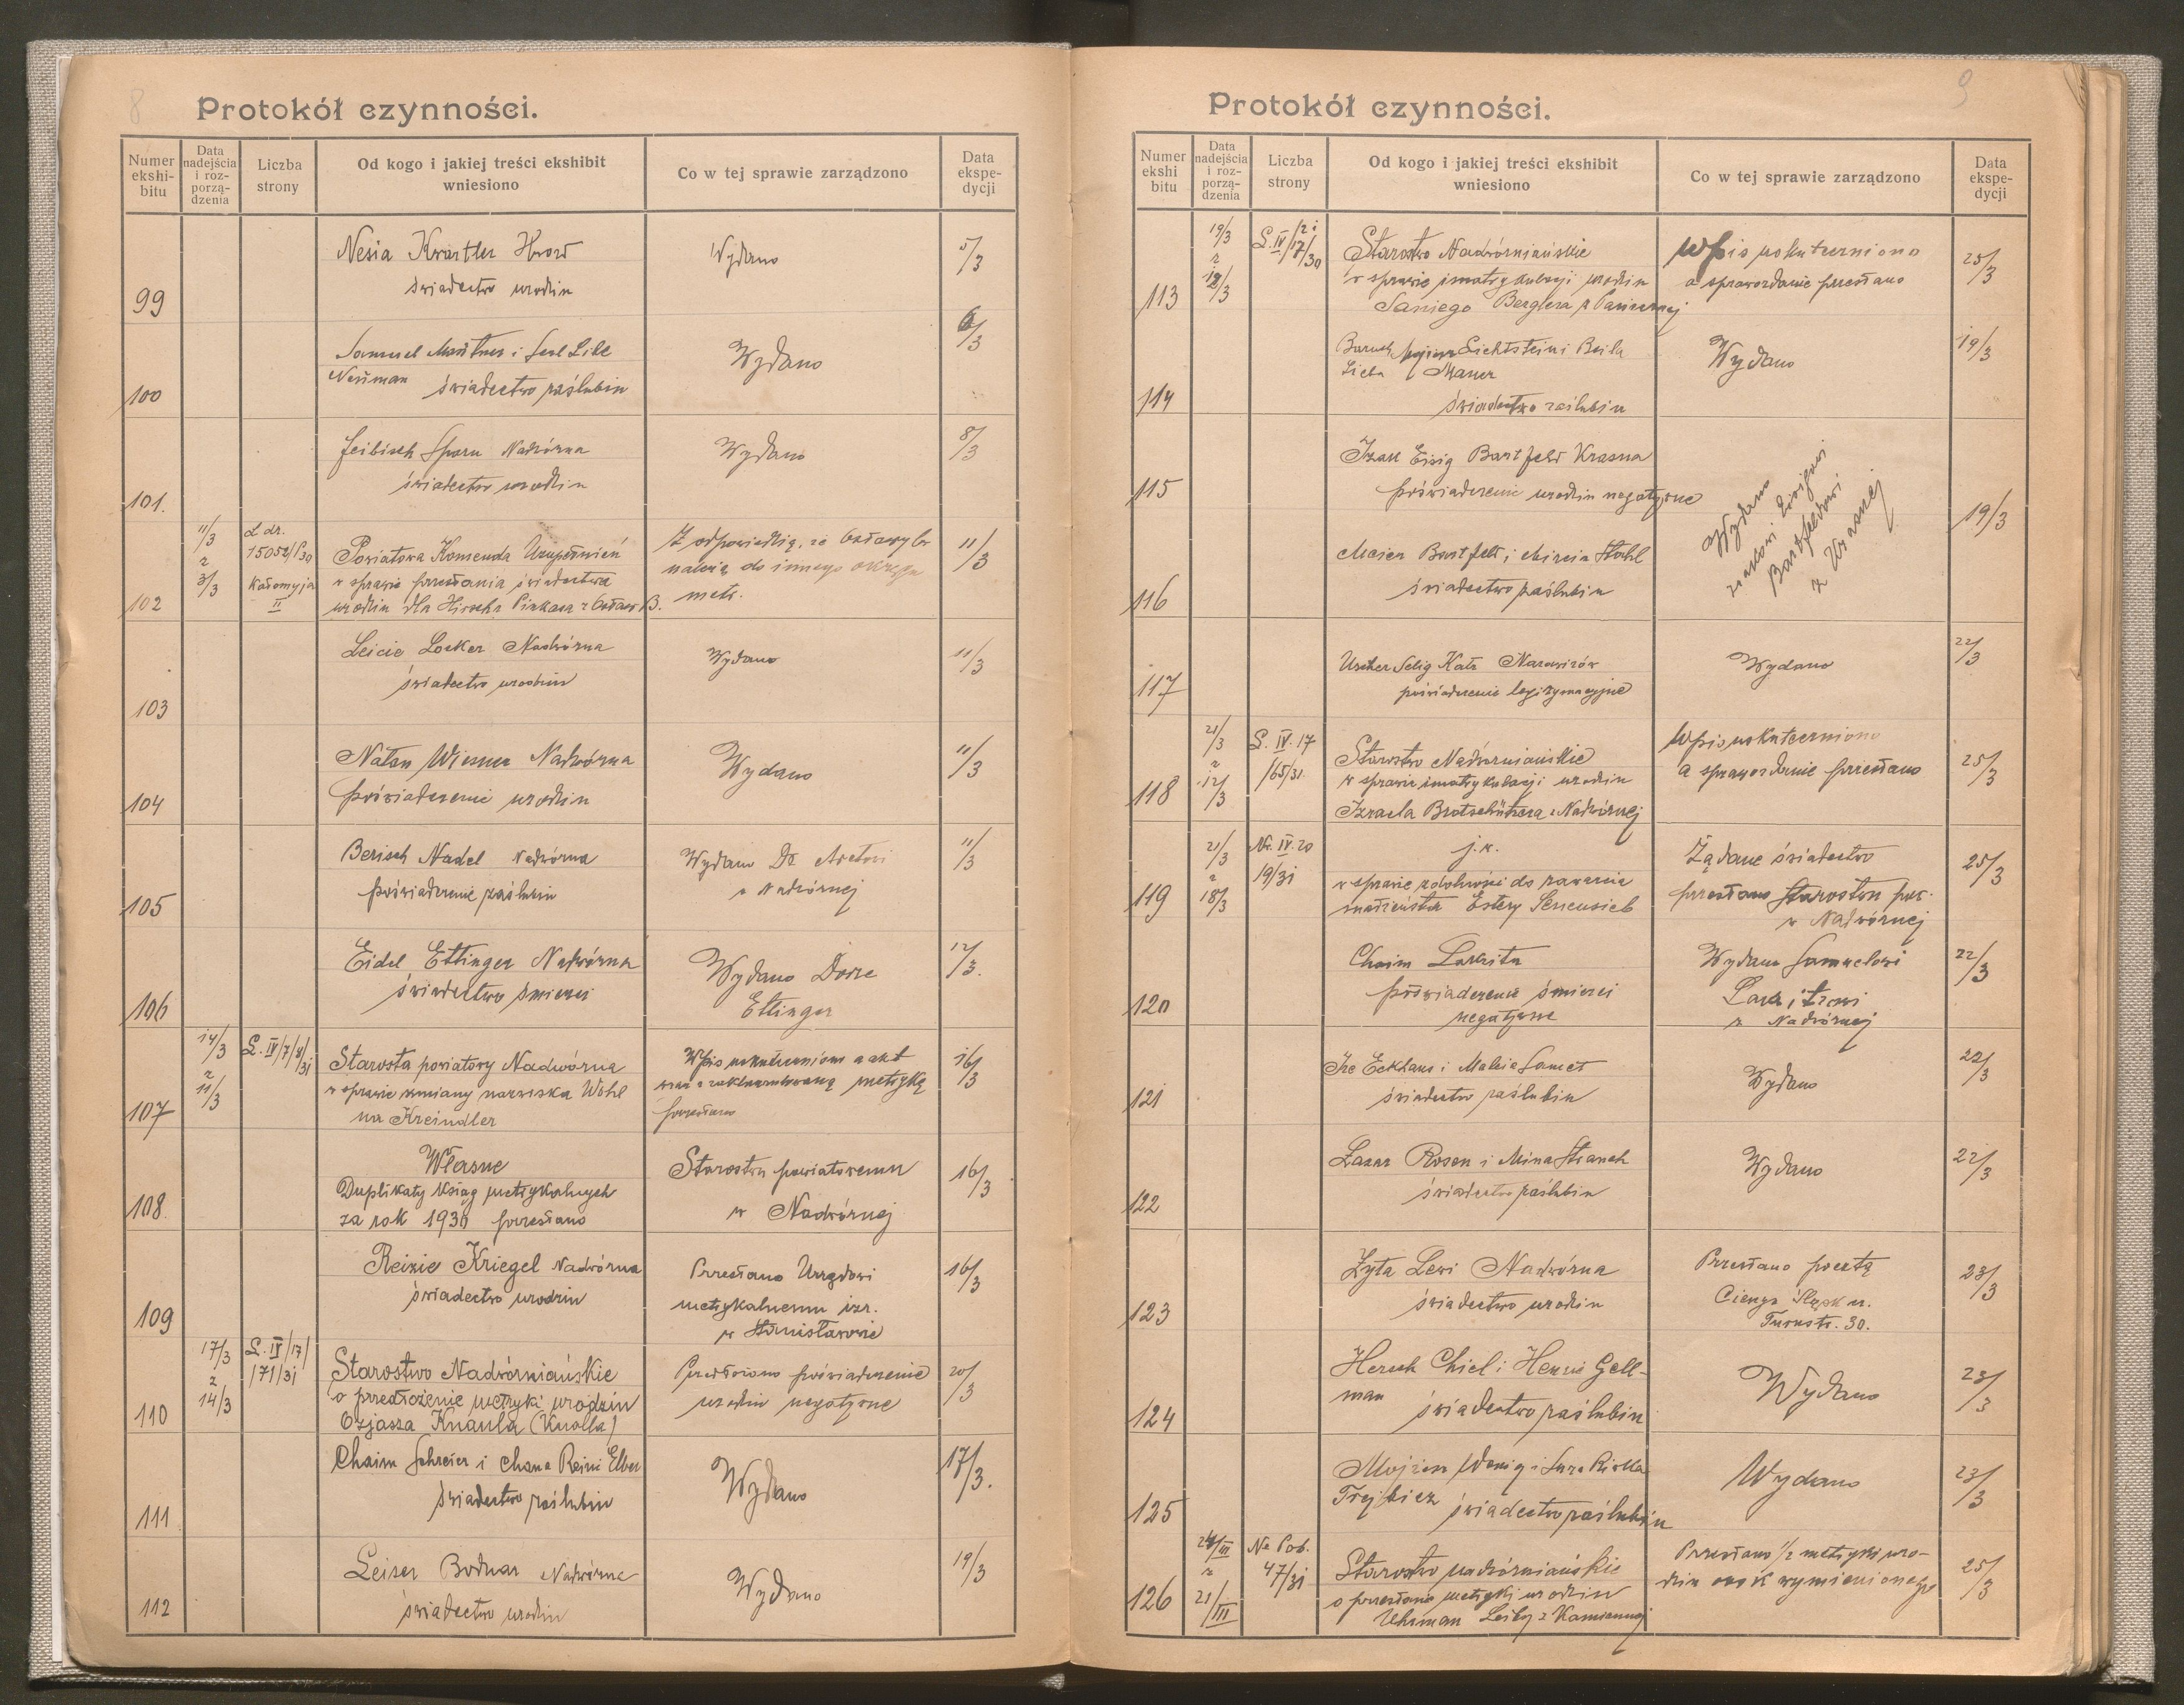 8
Protokół czynności.
Numer ekshi- bitu
Data nadejścia i roz- porzą- dzenia
Liczba strony
Od kogo i jakiej treści ekshibit wniesiono
Co w tej sprawie zarządzono
Data ekspe- dycji
99
Nesia Kwartler
świadectwo urodzin
Wydano
5/3
100
Samuel i
świadectwo zaślubin
Wydano
6/3
101.
Feibisch Nadwórna
świadectwo urodzin
Wydano
8/3
102
11/3
z
3/3
L dz.
15052/P30
Kołomyja
II
Powiatowa Komenda Uzupełnień
w sprawie przesłania świadectwa
urodzin dla Hirscha Pinkasa z
Z odpowiedzią, że
należą do innego okręgu
metr.
11/3
103
Locker Nadwórna
świadectwo urodzin
Wydano
11/3
104
Natan Wiesner Nadwórna
poświadczenie urodzin
Wydano
11/3
105
Berisch Nadel Nadwórna
poświadczenie zaślubin
Wydano Dr
w Nadwórnej
11/3
106
Eidel Ettinger Nadwórna
świadectwo śmierci
Wydano Dorze
Ettinger
12/3.
107
14/3
z
11/3
L. IV/7/8/31
Starosta powiatowy Nadwórna
w sprawie zmiany nazwiska Wohl
na Kreindler
Wpis uskuteczniono a akt
wraz z metryką
przesłano
16/3
108.
Własne
Duplikaty ksiąg metrykalnych
za rok 1930 przesłano
Starostwu powiatowemu
w Nadwórnej
16/3
109
Reizie Kriegel Nadwórna
świadectwo urodzin
Przesłano Urzędowi
metrykalnemu izr.
w Stanisławowie
16/3
110
17/3
z
14/3
L. IV/17/
/71/31
Starostwo Nadwórniańskie
o przedłożenie metryki urodzin
Ozjasza Knaula (Knolla)
Przedłożono poświadczenie
urodzin negatywne
20/3
111
Chaim Schreier i Chana Reizie Elber
świadectwo zaślubin
Wydano
17/3.
112
Leiser Bodnar Nadwórna
świadectwo urodzin
Wydano
19/3
9
Protokół czynności.
Numer ekshi bitu
Data nadejścia i roz- porzą- dzenia
Liczba strony
Od kogo i jakiej treści ekshibit wniesiono
Co w tej sprawie zarządzono
Data ekspe- dycji
113
19/3
z
12/3
Starostwo Nadwórniańskie
w sprawie imatrykulacji urodzin
Berglera z
Wpis uskuteczniono
a sprawozdanie przesłano
25/3
114
Baruch Lichtstein i Beila
świadectwo zaślubin
Wydano
19/3
115
Izak Eisig Bartfeld Krasna
poświadczenie urodzin negatywne
116
Meier Bartfeld i Stahl
świadectwo zaślubin
Wydano
Bartfeldowi
z Krasnej
19/3
117
Uscher Selig Katz
poświadczenie legitymacyjne
Wydano
22/3
118
21/3
z
12/3
L. IV. 17
/65/31
Starostwo Nadwórniańskie
w sprawie imatrykulacji urodzin
Izraela Brotschützera z Nadwórnej
Wpis uskuteczniono
a sprawozdanie przesłano
25/3
119
21/3
z
18/3
Nr. IV. 20
19/31
j.w.
w sprawie zdolności do zawarcia
małżeństwa Estery
Żądane świadectwo
przesłano Starostwu pow.
w Nadwórnej
25/3
120
Chaim
poświadczenie śmierci
negatywne
Wydano Samuelowi
z Nadwórnej
22/3
121
i Malcia Samet
świadectwo zaślubin
Wydano
22/3
122
Lazar Rosen i Mina
świadectwo zaślubin
Wydano
22/3
123
Zyta Lewi Nadwórna
świadectwo urodzin
Przesłano pocztą
Turnstr. 30.
23/3
124
Hersch Chiel i Gell-
man świadectwo zaślubin
Wydano
23/3
125
i Sara Rivka
świadectwo zaślubin
Wydano
23/3
126
24/III
z
21/III
Nr Pob.
47/31
Starostwo nadwórniańskie
o przesłanie metryki urodzin
Uhrman Leiby z Kamiennej
Przesłano 1/2 metryki uro-
dzin wymienionego
25/3